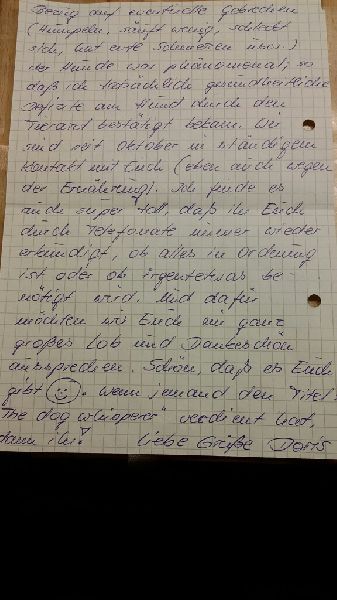 Bezug auf eventuelle Gebrechen
(Humpeln, säuft wenig, schleckt
sich, hat erste Schmerzen usw.)
der Hunde war phänomenal, so
daß ich tatsächlich gesundheitliche
Defizite am Hund durch den
Tierarzt bestätigt bekam. Wir
sind seit Oktober in ständigem
Kontakt mit Euch (eben auch wegen
der Ernährung). Ich finde es
auch super toll, daß ihr Euch
durch Telefonate immer wieder
erkundigt, ob alles in Ordnung
ist oder ob irgentetwas be-
nötigt wird. Und dafür
möchten wir Euch ein ganz
großes Lob und Dankeschön
aussprechen. Schön, daß es Euch
gibt ☺. Wenn jemand den Titel
"The dog whisperer" verdient hat,
dann ihr! Liebe Grüße Doris